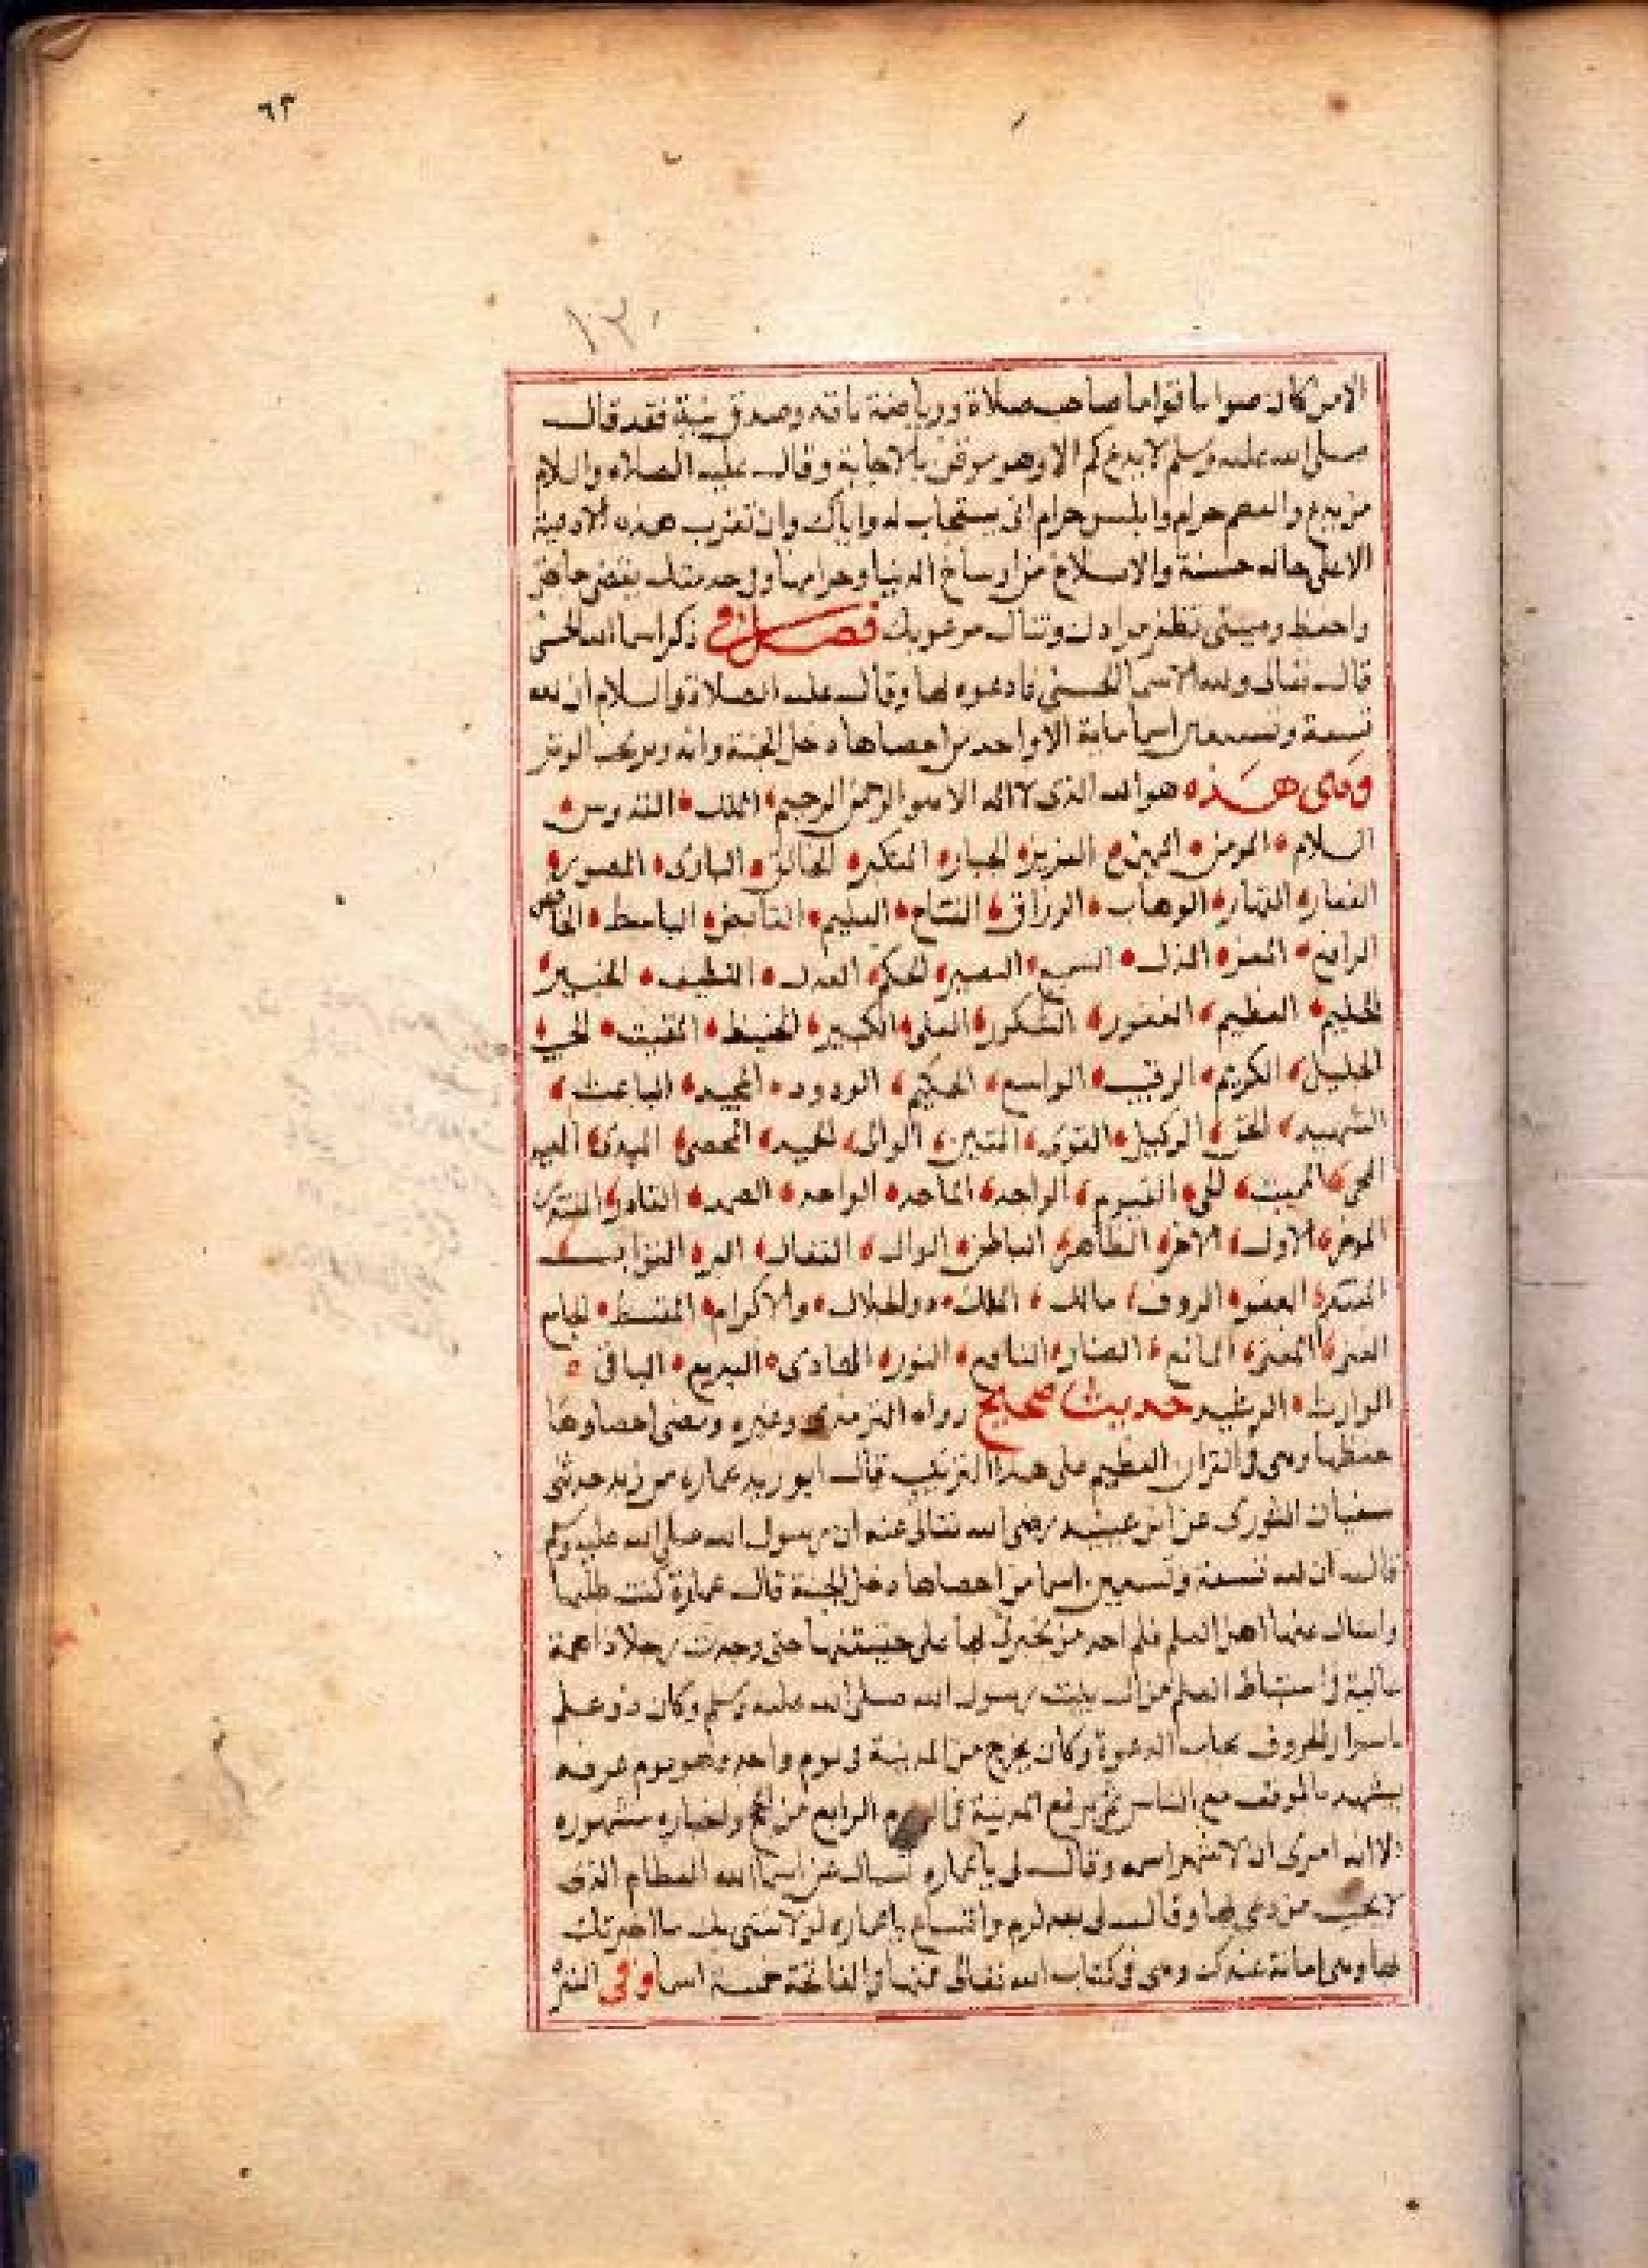 ٦٣
١٣٠
الا من كان صواما قواما صاحب صلاة ورياضة تامة وصدق نية فقد قال
صلى الله عليه وسلم لا يدع كم الا وهو موقن بالاجابة وقال عليه الصلاه والسلام
من يدع والمطعم حرام والملبس حرام انى يستجاب له واياك وان تقرب هذه الادعية
الا على حاله حسنة والانسلاخ من اوساخ الدنيا وحرامها
واحفظ وصيتى تظفر بمرادك وتنال مرغوبك فصل فى ذكر اسما الله الحسنى
قال تعالى ولله الاسما الحسنى فادعوه بها وقال عليه الصلاة والسلام ان لله
تسعة وتسعين اسما ماية الا واحد من احصاها دخل الجنة وانه وتر يحب الوتر
وهى هذه هو الله الذى لا اله الا هو الرحمن الرحيم الملك القدوس
السلام المومن المهيمن العزيز الجبار المتكبر الخالق البارى المصور
الغفار القهار الوهاب الرزاق الفتاح العليم القابض الباسط الخافض
الرافع المعز المذل السميع البصير الحكم العدل اللطيف الخبير
الحليم العظيم الغفور الشكور العلى الكبير الحفيظ المقيت الحسيب
الجليل الكريم الرقيب الواسع الحكيم الودود المجيد الباعث
الشهيد الحق الوكيل القوى المتين الوالى الحميد المحصى المبدى المعيد
المحى المميت الحى القيوم الواجد الماجد الواحد الصمد القادر المقتدر
الموخر الاول الاخر الظاهر الباطن الوالى المتعال البر التواب
المنتقم العفو الروف مالك الملك ذو الجلال والاكرام المقسط الجامع
الغنى المغنى المانع الضار النافع النور الهادى البديع الباقى
الوارث الرشيد حديث صحيح رواه الترمذى وغيره ومعنى احصاوها
حفظها وهى فى القران العظيم على هذا الترتيب قال ابو زيد عماره بن زيد حدثنى
سفيان الثورى عن ابن عيينه رضى الله تعالى عنه ان رسول الله صلى الله عليه وسلم
قال ان لله تسعة وتسعين اسما من احصاها دخل الجنة قال عمارة كنت طلبها
واسال عنها اهل العلم فلم اجد من يخبرنى بها على حقيقتها حتى وجدت رجلا ذا همة
عالية فى استنباط العلم من ال بيت رسول الله صلى الله عليه وسلم وكان ذو علم
باسرار الحروف مجاب الدعوة وكان يخرج من المدينة فى يوم واحد وهو يوم عرفه
يشهد الموقف مع الناس ثم يرجع المدينة فى اليوم الرابع من الحج واخباره مشهوره
الا انه امرنى ان لا اشهر اسمه وقال لى يا عماره تسال عن اسما الله العظام الذى
لا يخيب من دعى بها وقال لى بعد لزم واقسام يا عماره لولا ما اخبرتك
بها وهى امانة عندك وهى فى كتاب الله تعالى فمنها فى الفاتحة خمسة اسما وفى البقرة